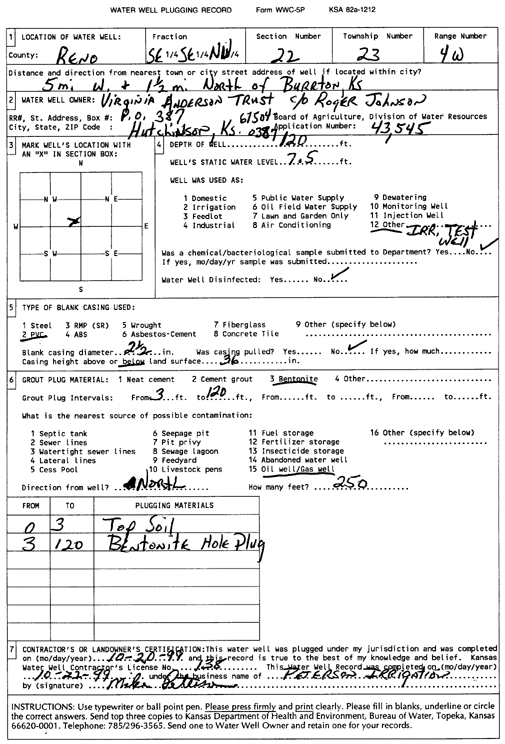 WATER WELL PLUGGING RECORD Form WWC-5P KSA 82a-1212
1 LOCATION OF WATER WELL: Fraction Section Number Township Number Range Number
County: RENO SE 1/4 SE 1/4 NW 1/4 22 23 4W
Distance and direction from nearest town or city street address of well if located within city?
5 mi W. + 1 1/2 mi. North of BURRTON KS
2 WATER WELL OWNER: VIRGINIA ANDERSON TRUST c/o ROGER JOHNSON
RR#, St. Address, Box #: P.O. 387 67504 Board of Agriculture, Division of Water Resources
City, State, ZIP Code : Hutchinson, Ks. 0387 Application Number: 43,545
3 MARK WELL'S LOCATION WITH AN "X" IN SECTION BOX:
N
N W N E
X
W E
S W S E
S
4 DEPTH OF WELL...120...ft.
WELL'S STATIC WATER LEVEL..7.5...ft.
WELL WAS USED AS:
1 Domestic 5 Public Water Supply 9 Dewatering
2 Irrigation 6 Oil Field Water Supply 10 Monitoring Well
3 Feedlot 7 Lawn and Garden Only 11 Injection Well
4 Industrial 8 Air Conditioning 12 Other IRR, TEST WELL
Was a chemical/bacteriological sample submitted to Department? Yes....No..✓
If yes, mo/day/yr sample was submitted...................
Water Well Disinfected: Yes...... No..✓
5 TYPE OF BLANK CASING USED:
1 Steel 3 RMP (SR) 5 Wrought 7 Fiberglass 9 Other (specify below)
2 PVC 4 ABS 6 Asbestos-Cement 8 Concrete Tile
Blank casing diameter..2 1/2...in. Was casing pulled? Yes...... No..✓ If yes, how much..........
Casing height above or below land surface....36............in.
6 GROUT PLUG MATERIAL: 1 Neat cement 2 Cement grout 3 Bentonite 4 Other...................
Grout Plug Intervals: From..3...ft. to 120 ft., From......ft. to .....ft., From......to......ft.
What is the nearest source of possible contamination:
1 Septic tank 6 Seepage pit 11 Fuel storage 16 Other (specify below)
2 Sewer lines 7 Pit privy 12 Fertilizer storage
3 Watertight sewer lines 8 Sewage lagoon 13 Insecticide storage
4 Lateral lines 9 Feedyard 14 Abandoned water well
5 Cess Pool 10 Livestock pens 15 Oil well/Gas well
Direction from well? ...NORTH........ How many feet? ....250.......
FROM TO PLUGGING MATERIALS
0 3 Top Soil
3 120 BENTONITE Hole Plug
7 CONTRACTOR'S OR LANDOWNER'S CERTIFICATION: This water well was plugged under my jurisdiction and was completed
on (mo/day/year)...10-20-99 and this record is true to the best of my knowledge and belief. Kansas
Water Well Contractor's License No....138........ This Water Well Record was completed on (mo/day/year)
..10-22-99. under the business name of ....PETERSON IRRIGATION
by (signature) Mike
INSTRUCTIONS: Use typewriter or ball point pen. Please press firmly and print clearly. Please fill in blanks, underline or circle
the correct answers. Send top three copies to Kansas Department of Health and Environment, Bureau of Water, Topeka, Kansas
66620-0001. Telephone: 785/296-3565. Send one to Water Well Owner and retain one for your records.